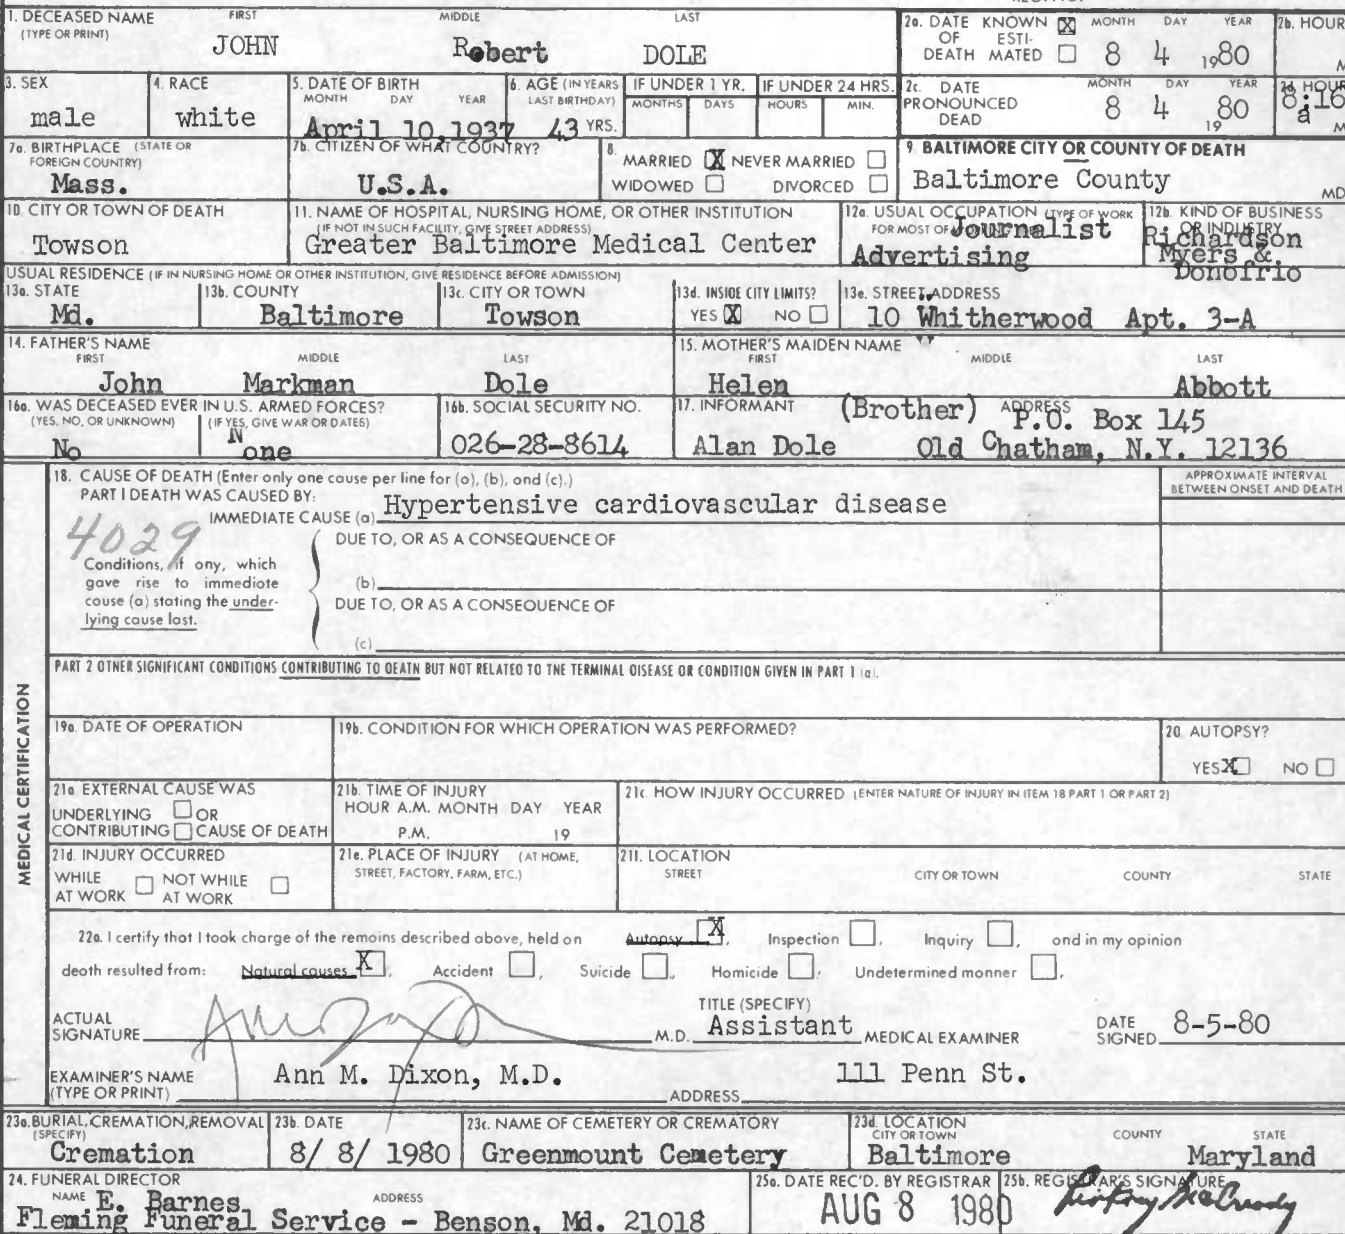 1. DECEASED NAME (TYPE OR PRINT) FIRST MIDDLE LAST
JOHN Robert DOLE
2a. DATE OF DEATH KNOWN X ESTIMATED MONTH DAY YEAR
8 4 1980
2b. HOUR
M
3. SEX
male
4. RACE
white
5. DATE OF BIRTH MONTH DAY YEAR
April 10, 1937
6. AGE (IN YEARS LAST BIRTHDAY)
43 YRS.
IF UNDER 1 YR. MONTHS DAYS
IF UNDER 24 HRS. HOURS MIN.
2c. DATE PRONOUNCED DEAD MONTH DAY YEAR
8 4 1980
2d HOUR
8:16 a M
7a. BIRTHPLACE (STATE OR FOREIGN COUNTRY)
Mass.
7b. CITIZEN OF WHAT COUNTRY?
U.S.A.
8. MARRIED X NEVER MARRIED
WIDOWED DIVORCED
9. BALTIMORE CITY OR COUNTY OF DEATH
Baltimore County MD
10. CITY OR TOWN OF DEATH
Towson
11. NAME OF HOSPITAL, NURSING HOME, OR OTHER INSTITUTION
(IF NOT IN SUCH FACILITY, GIVE STREET ADDRESS)
Greater Baltimore Medical Center
12a. USUAL OCCUPATION (TYPE OF WORK
FOR MOST OF
Journalist
Advertising
12b. KIND OF BUSINESS
OR INDUSTRY
Richardson
Myers &
Donofrio
USUAL RESIDENCE (IF IN NURSING HOME OR OTHER INSTITUTION, GIVE RESIDENCE BEFORE ADMISSION)
13a. STATE
Md.
13b. COUNTY
Baltimore
13c. CITY OR TOWN
Towson
13d. INSIDE CITY LIMITS?
YES X NO
13e. STREET ADDRESS
10 Whitherwood Apt. 3-A
14. FATHER'S NAME
FIRST MIDDLE LAST
John Markman Dole
15. MOTHER'S MAIDEN NAME
FIRST MIDDLE LAST
Helen Abbott
16a. WAS DECEASED EVER IN U.S. ARMED FORCES?
(YES, NO, OR UNKNOWN) (IF YES, GIVE WAR OR DATES)
No None
16b. SOCIAL SECURITY NO.
026-28-8614
17. INFORMANT ADDRESS
(Brother) P.O. Box 145
Alan Dole Old Chatham, N.Y. 12136
MEDICAL CERTIFICATION
18. CAUSE OF DEATH (Enter only one cause per line for (a), (b), and (c).)
PART I DEATH WAS CAUSED BY:
IMMEDIATE CAUSE (a) Hypertensive cardiovascular disease
APPROXIMATE INTERVAL
BETWEEN ONSET AND DEATH
4029
Conditions, if any, which
gave rise to immediate
cause (a) stating the under-
lying cause last.
DUE TO, OR AS A CONSEQUENCE OF
(b)
DUE TO, OR AS A CONSEQUENCE OF
(c)
PART 2 OTHER SIGNIFICANT CONDITIONS CONTRIBUTING TO DEATH BUT NOT RELATED TO THE TERMINAL DISEASE OR CONDITION GIVEN IN PART 1 (a).
19a. DATE OF OPERATION
19b. CONDITION FOR WHICH OPERATION WAS PERFORMED?
20. AUTOPSY?
YES X NO
21a EXTERNAL CAUSE WAS
UNDERLYING OR
CONTRIBUTING CAUSE OF DEATH
21b. TIME OF INJURY
HOUR A.M. MONTH DAY YEAR
P.M. 19
21c. HOW INJURY OCCURRED (ENTER NATURE OF INJURY IN ITEM 18 PART 1 OR PART 2)
21d. INJURY OCCURRED
WHILE AT WORK NOT WHILE AT WORK
21e. PLACE OF INJURY (AT HOME,
STREET, FACTORY, FARM, ETC.)
21f. LOCATION
STREET CITY OR TOWN COUNTY STATE
22a. I certify that I took charge of the remains described above, held on Autopsy X, Inspection, Inquiry, and in my opinion
death resulted from: Natural causes X, Accident, Suicide, Homicide, Undetermined manner.
ACTUAL SIGNATURE M.D.
TITLE (SPECIFY)
Assistant MEDICAL EXAMINER
DATE SIGNED 8-5-80
EXAMINER'S NAME (TYPE OR PRINT) Ann M. Dixon, M.D.
ADDRESS 111 Penn St.
23a. BURIAL, CREMATION, REMOVAL (SPECIFY)
Cremation
23b. DATE
8/ 8/ 1980
23c. NAME OF CEMETERY OR CREMATORY
Greenmount Cemetery
23d. LOCATION
CITY OR TOWN COUNTY STATE
Baltimore Maryland
24. FUNERAL DIRECTOR
NAME ADDRESS
E. Barnes
Fleming Funeral Service - Benson, Md. 21018
25a. DATE REC'D. BY REGISTRAR
AUG 8 1980
25b. REGISTRAR'S SIGNATURE